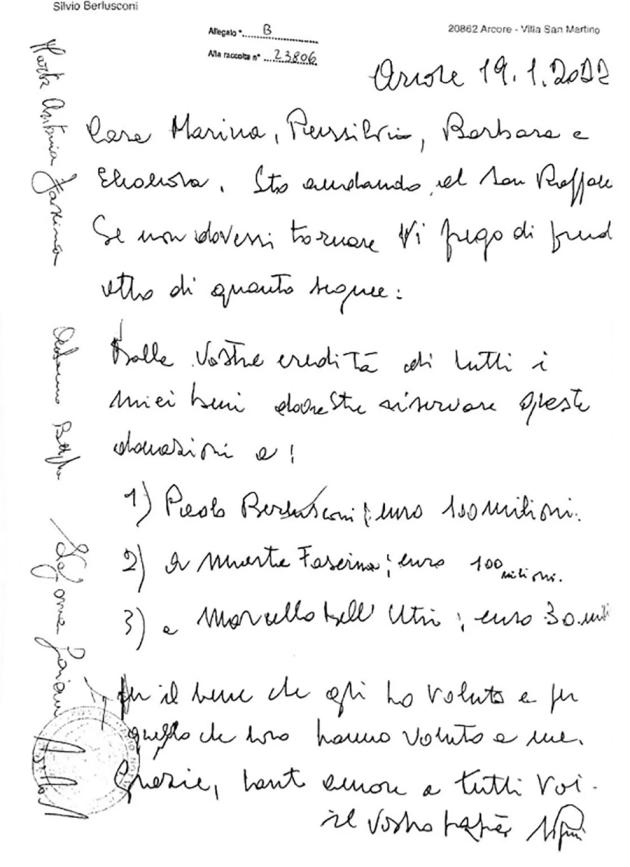 Silvio Berlusconi
Allegato "B
Alla raccolta n° 23806
20862 Arcore - Villa San Martino
Arcore 19.1.2022
Care Marina, Piersilvio, Barbara e
Eleonora. Sto andando al San Raffaele
Se non dovessi tornare Vi prego di prend
atto di quanto segue:
Dalla vostre eredità di tutti i
miei beni dovreste riservare queste
donazioni a:
1) Paolo Berlusconi; euro 100 milioni.
2) a Marta Fascina; euro 100 milioni.
3) a Marcello Dell'Utri; euro 30 mili
Per il bene che gli ho voluto e per
quello che loro hanno voluto a me.
Grazie, tanto amore a tutti Voi.
il vostro papà
Marta Antonia Fascina